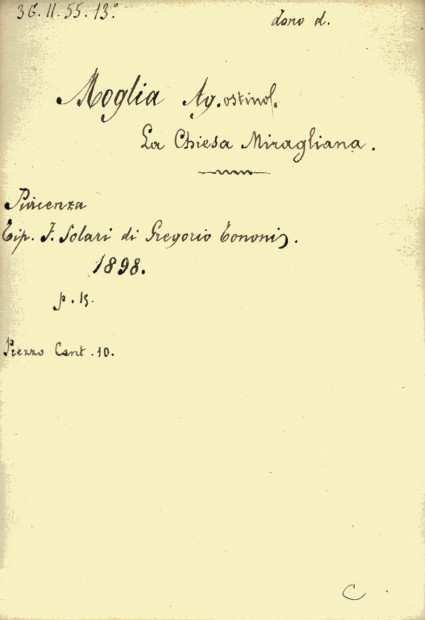 3G.II.55.13°
dono d.
Moglia Agostino.
La Chiesa Miragliana.
Piacenza
Tip. F. Solari di Gregorio Tononi.
1898.
p. 15.
Prezzo Cent. 10.
C